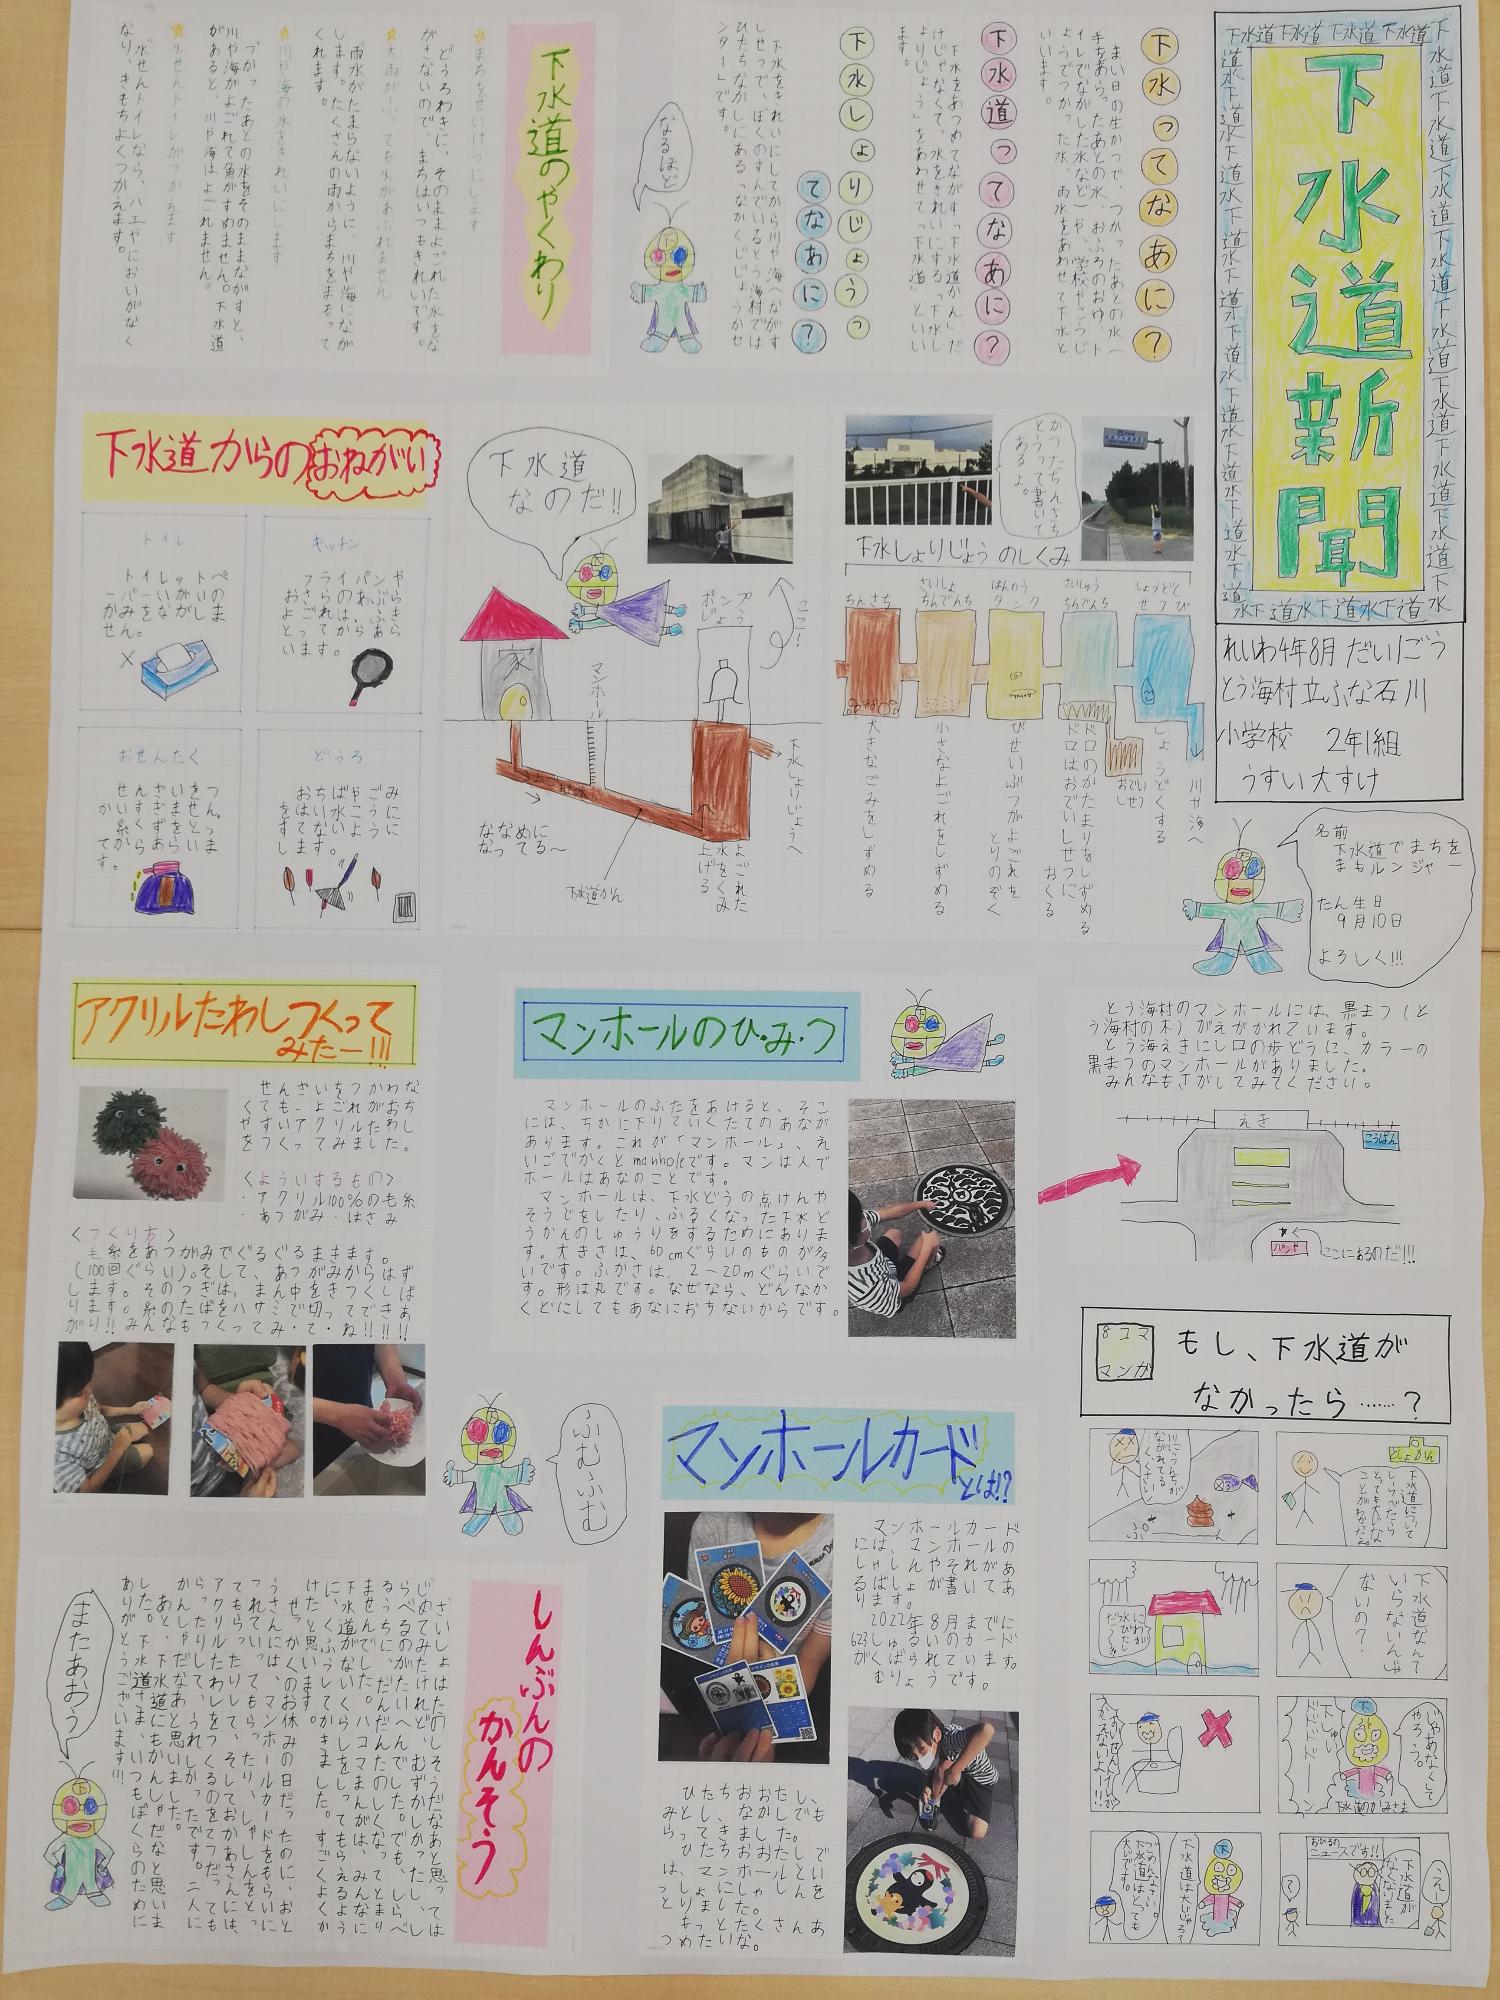 下水道新聞
れいわ4年8月 だい1ごう
とう海村立ふな石川
小学校 2年1組
うすい 大すけ
名前
下水道でまちを
まもルンジャー
たん生日
9月10日
よろしく!!!
下水ってなあに?
まい日の生かつで、つかったあとの水(
手をあらったあとの水、おふろのおゆ、ト
イレでながした水など)や、学校やこうじ
ょうでつかった水、雨水をあわせて下水と
いいます。
下水道ってなあに?
下水をあつめてながす「下水道かん」だ
けじゃなくて、水をきれいにする「下水し
ょりじょう」をあわせて「下水道」といい
ます。
下水しょりじょうっ
てなあに?
下水をきれいにしてから川や海へながす
しせつで、ぼくのすんでいるとう海村では
ひたちなかしにある「なかじじょうかせ
ンター」です。
なるほど
下水道のやくわり
まちをせいけつにします
どうろわきに、そのままよごれた水をな
がさないので、まちはいつもきれいです。
大雨がふっても水があふれません
雨水がたまらないように、川や海になが
します。たくさんの雨からまちをまもって
くれます。
川や海の水をきれいにします
つかったあとの水をそのままながすと、
川や海がよごれて魚がすめません。下水道
があると、川や海はよごれません。
水せんトイレがつかえます
水せんトイレなら、ハエやにおいがなく
なり、きもちよくつかえます。
かつたちんさち
とうって書いて
あるよ。
下水しょりじょうのしくみ
ちんさち
さいしょ
ちんでんち
はんのう
タンク
さいしゅう
ちんでんち
しょうどく
せつび
大きなごみをしずめる
小さなよごれをしずめる
びせいぶつがよごれを
とりのぞく
ドロのかたまりをしずめる
ドロはおでいしせつに
おくる
おでい
しせつ
しょうどくする
川や海へ
下水道
なのだ!!
ココ!
ポンプ
じょう
家
マンホール
よごれた水
ななめに
なってる〜
下水道かん
よごれた
水をくみ
上げる
下水しょりじょうへ
下水道からのおねがい
トイレ
トイレットペ
ーパーがいの
かみをながしま
せん。
キッチン
フライパンや
おさらのあぶら
よごれは、ふき
とってからあら
います。
おせんたく
せんざいをつ
かいすぎません。
糸くずをせっ
からとらいま
す。
どうろ
おちばやごみ
をはいすいこうに
すてないように
します。
アクリルたわしつくって
みたー!!!
せんざいをつかわな
くても、よごれがおち
やすいアクリルたわし
をつくってみました。
<よういするもの>
・アクリル100%のも糸
・あつがみ・はさみ
<つくり方>
毛糸をあつがみでぐるぐるまきます。
(100回ぐらい)。そして、あつがみからはず
します。そのつぎは、まん中をきつくしば
ります。糸のたばをハサミで切ってできあ
がり!!みんなもつくってみて・ね!!!!!
マンホールのひ・み・つ
マンホールのふたをあけると、そこ
には、ちかに下りていくたてのあなが
あります。これが「マンホール」、え
いごでかくとmanholeです。マンは人で
ホールはあなのことです。
マンホールは、下水どうの点けんや
そうじをしたり、ふるくなった下水ど
うかんのしゅうりをするためにありま
す。大きさは、60cmぐらいのものが多
いです。ふかさは、2〜20mぐらいで
す。形は丸です。なぜなら、どんなか
くどにしてもあなにおちないからです。
とう海村のマンホールには、黒まつ(と
う海村の木)がえがかれています。
とう海えきにし口の歩どうに、カラーの
黒まつのマンホールがありました。
みんなもさがしてみてください。
えき
こうばん
パンや
ここにあるのだ!!!
ふむふむ
マンホールカード
とは!?
マンホールカードの
は、マンホールがあ
しゃしんやそれがあ
ばしょが書いてあ
ります。
2022年8月までに
623しゅるいのカード
がくばられています。
8コマ
マンガ
もし、下水道が
なかったら……?
としょかん
下水道について
しらべたら
とっても大じな
ことがわかったよ。
川にうんちが
ながれてる
くさい!
下水道なんて
いらないんじゃ
ない?
いやあなくして
やろう。
下水道のかみさま
おひるの
ニュースです!!
下水道が
なくなりました
えー!
?
下水道は大じじゃろ?
ごめんなさい。
下水道はとっても
大じです。
しんぶんの
かんそう
さいしょはたのしそうだなあと思っては
じめてみたけれど、むずかしかったし、し
らべるのがたいへんでした。でも、しらべ
るうちに、だんだんたのしくなってとまり
ませんでした。ハコマまんがは、みんなに
下水道がないくらしをしってもらえるよう
に、くふうしてかきました。すごくよくか
けたと思います。
せっかくのお休みの日だったのに、おと
うさんには、マンホールカードをもらいに
つれていってもらったり、しゃしんをとっ
てもらったりして、そしておかあさんには、
アクリルたわしをつくるのをてつだっても
らったりして、うれしかったです。二人に
かんしゃだなあと思いました。
あと、下水道にもかんしゃだなと思いま
した。下水道さま、いつもぼくらのために
ありがとうございます!!!
またあおう